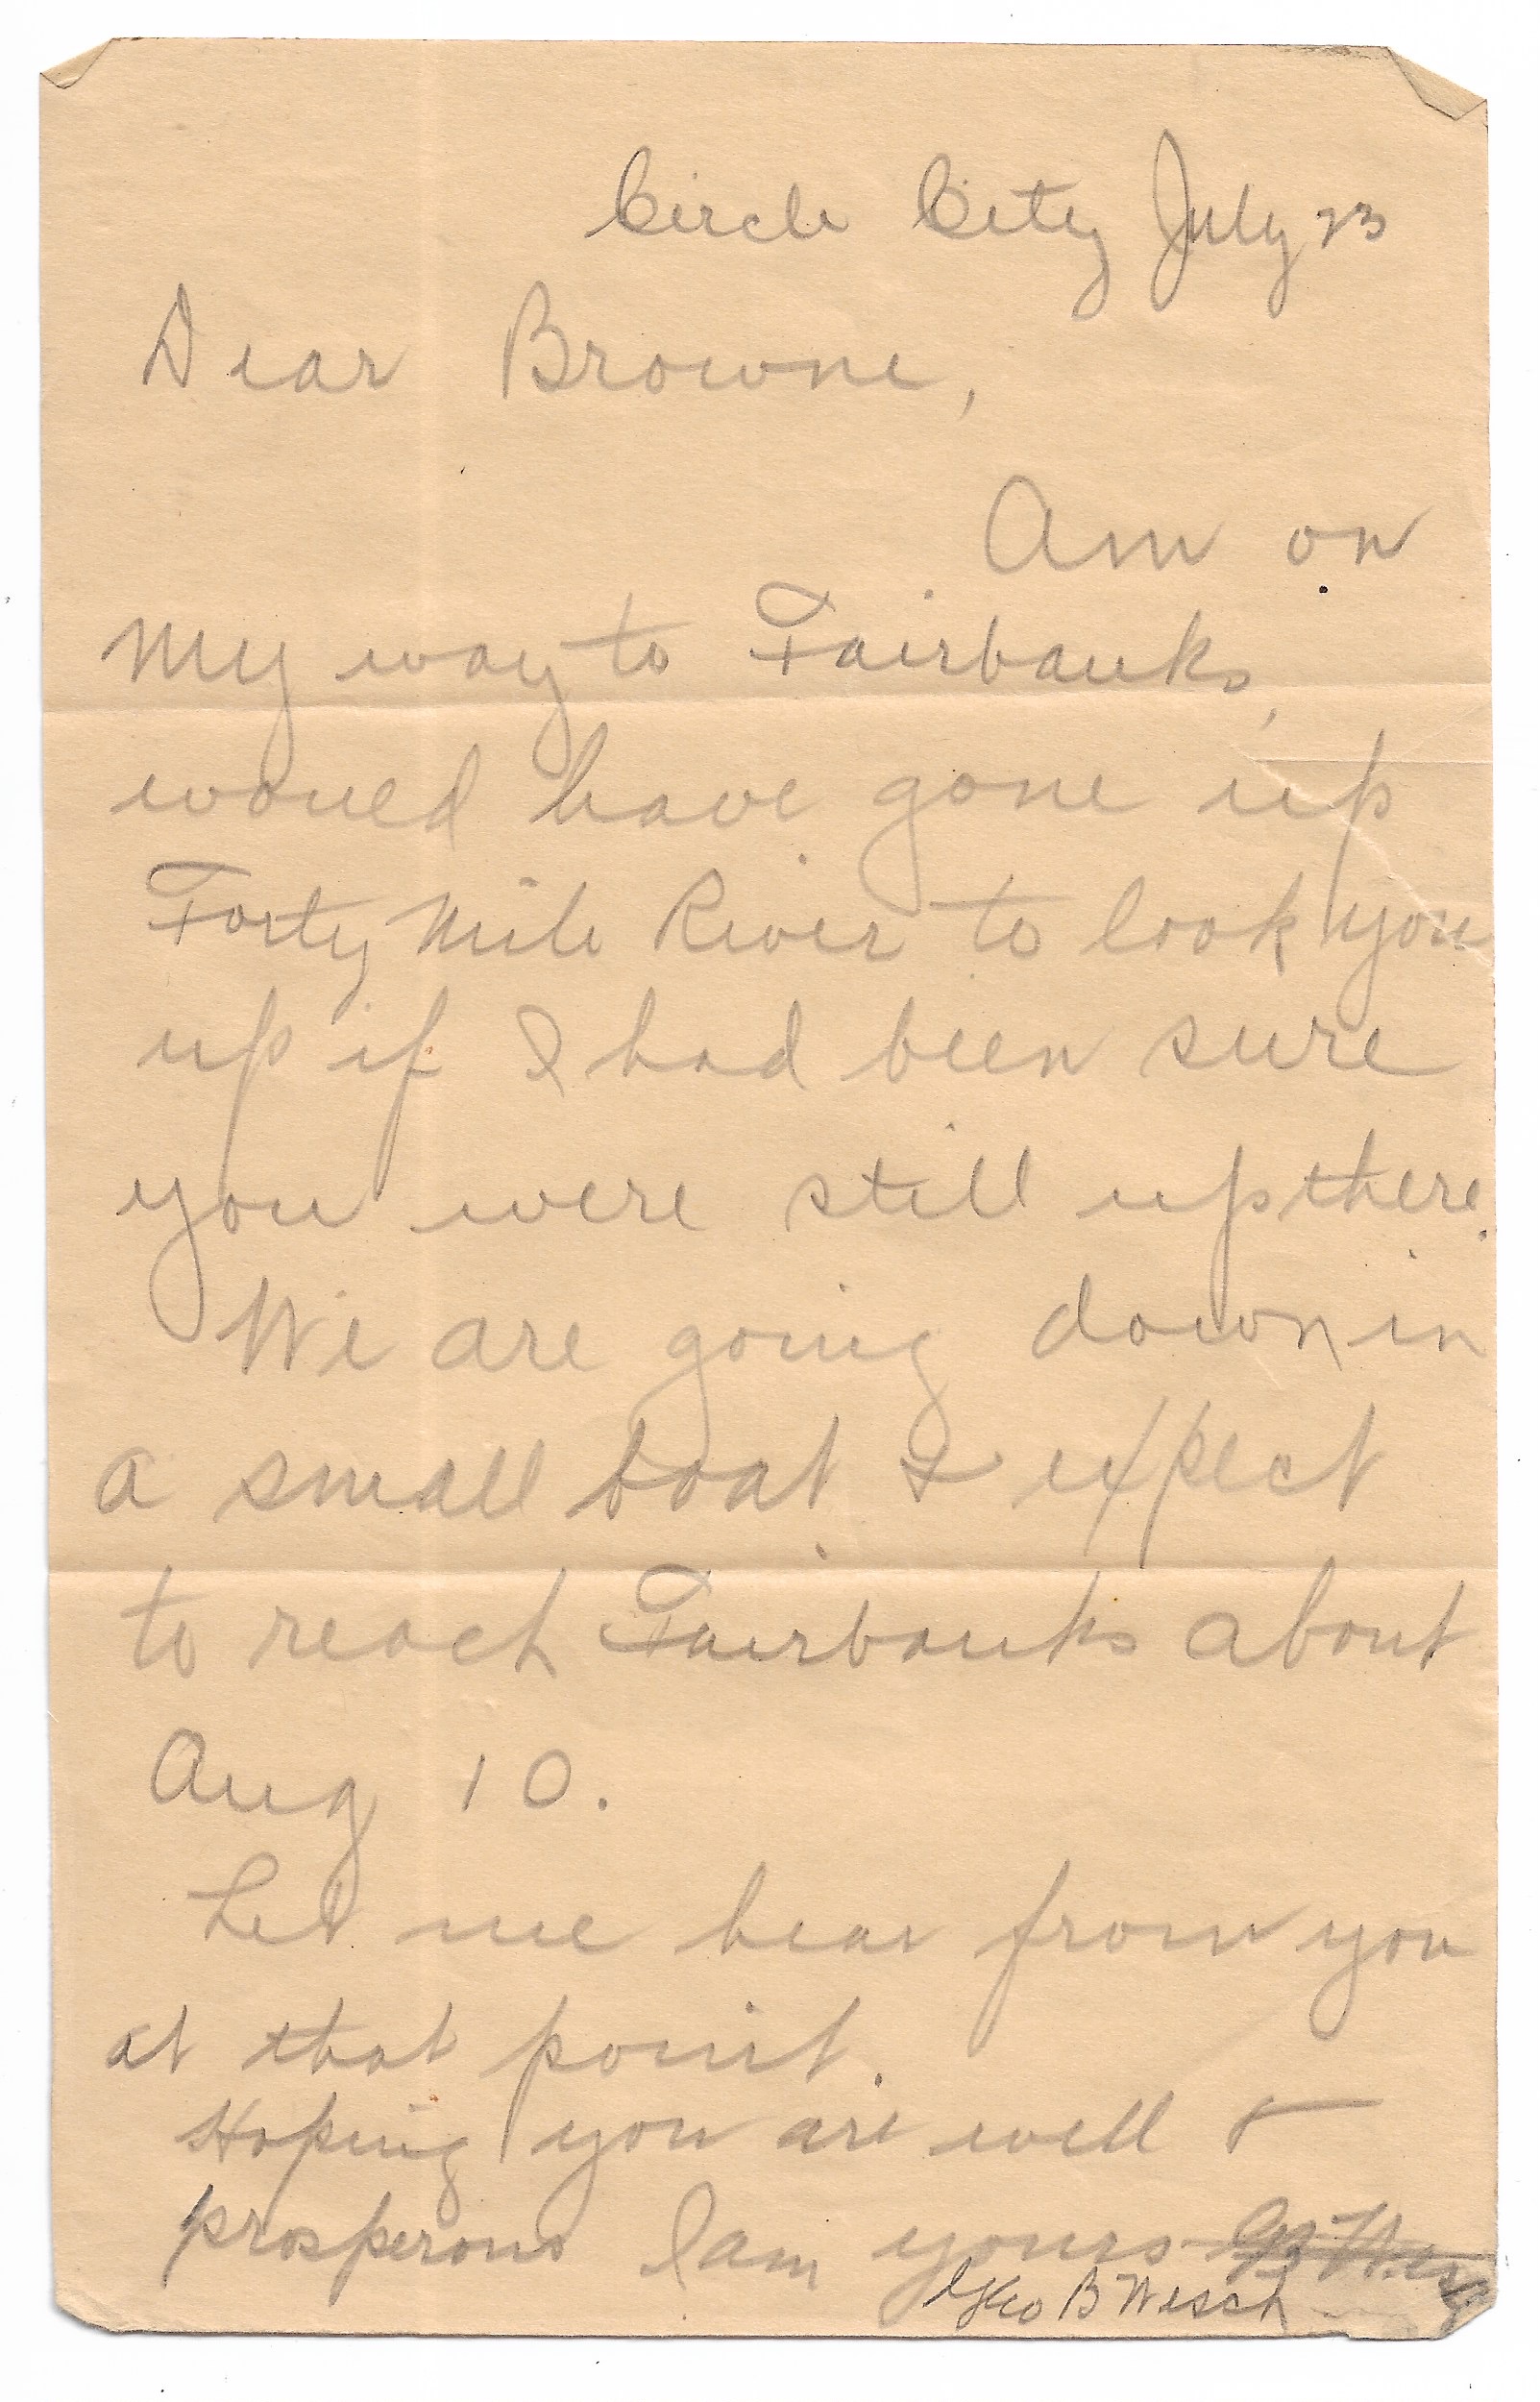 Circle City July 23
Dear Browne,
Am on
my way to Fairbanks,
would have gone up
Forty Mile River to look you
up if I had been sure
you were still up there.
We are going down in
a small boat & expect
to reach Fairbanks about
Aug 10.
Let me hear from you
at that point.
Hoping you are well &
prosperous I am yours
Geo B Wesch